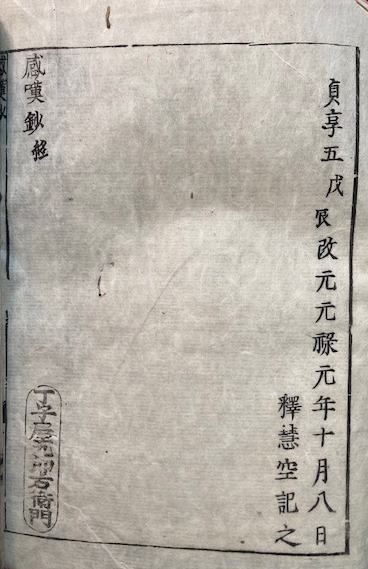 貞享五戊辰改元元祿元年十月八日
釋慧空記之
感嘆鈔終
丁字屋九郎右衛門